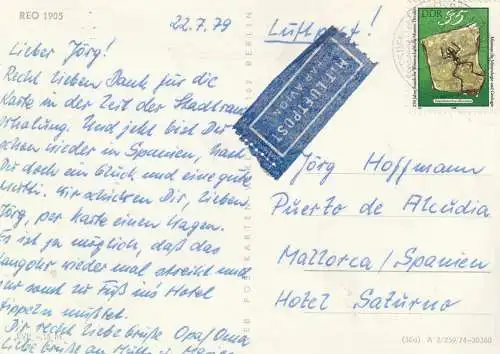 REO 1905
22.7.79
Luftpost!
Lieber Jörg!
Recht lieben Dank für die
Karte in der Zeit der Stadtrand
erholung. Und jetzt bist Du
schon wieder in Spanien, hast
Du doch ein Glück und eine gute
Mutti. Wir schicken Dir, lieber
Jörg, per Karte einen Wagen.
Es ist ja möglich, daß das
Langohr wieder mal streikt und
Du sonst zu Fuß ins Hotel
tippeln müßtest.
Dir recht liebe Grüße Opa/Oma
Liebe Grüße an Mutti u.
MIT LUFTPOST
PAR AVION
DDR 35
Jörg Hoffmann
Puerto de Alcudia
Mallorca/Spanien
Hotel Saturno
BERLIN
(36a) A 2/259/74-30360